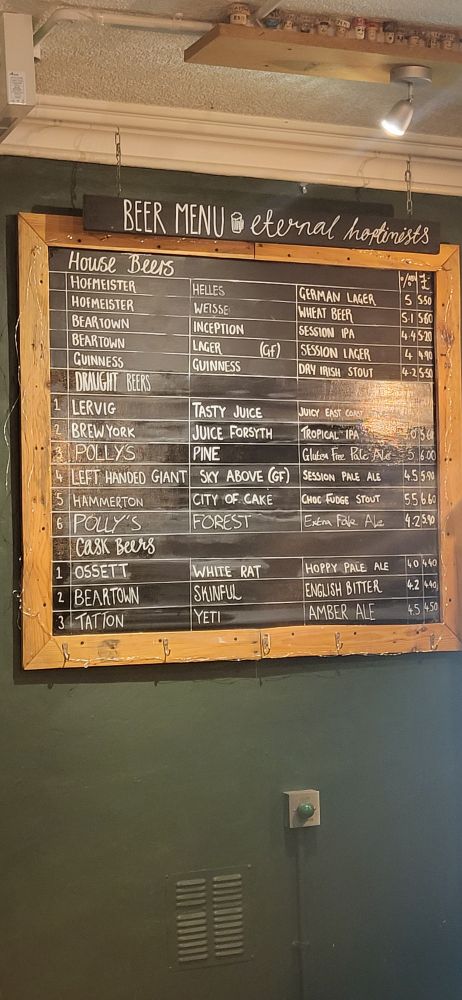 BEER MENU eternal hoptimists
House Beers %/ABV £
HOFMEISTER HELLES GERMAN LAGER 5 5.50
HOFMEISTER WEISSE WHEAT BEER 5.1 5.60
BEARTOWN INCEPTION SESSION IPA 4.4 5.20
BEARTOWN LAGER (GF) SESSION LAGER 4 4.90
GUINNESS GUINNESS DRY IRISH STOUT 4.2 5.50
DRAUGHT BEERS
1 LERVIG TASTY JUICE JUICY EAST COAST
2 BREWYORK JUICE FORSYTH TROPICAL IPA
3 POLLYS PINE Gluten Free Pale Ale 5 6.00
4 LEFT HANDED GIANT SKY ABOVE (GF) SESSION PALE ALE 4.5 5.90
5 HAMMERTON CITY OF CAKE CHOC FUDGE STOUT 5.5 6.60
6 POLLY'S FOREST Extra Pale Ale 4.2 5.90
CASK BEERS
1 OSSETT WHITE RAT HOPPY PALE ALE 4.0 4.40
2 BEARTOWN SKINFUL ENGLISH BITTER 4.2 4.40
3 TATTON YETI AMBER ALE 4.5 4.50